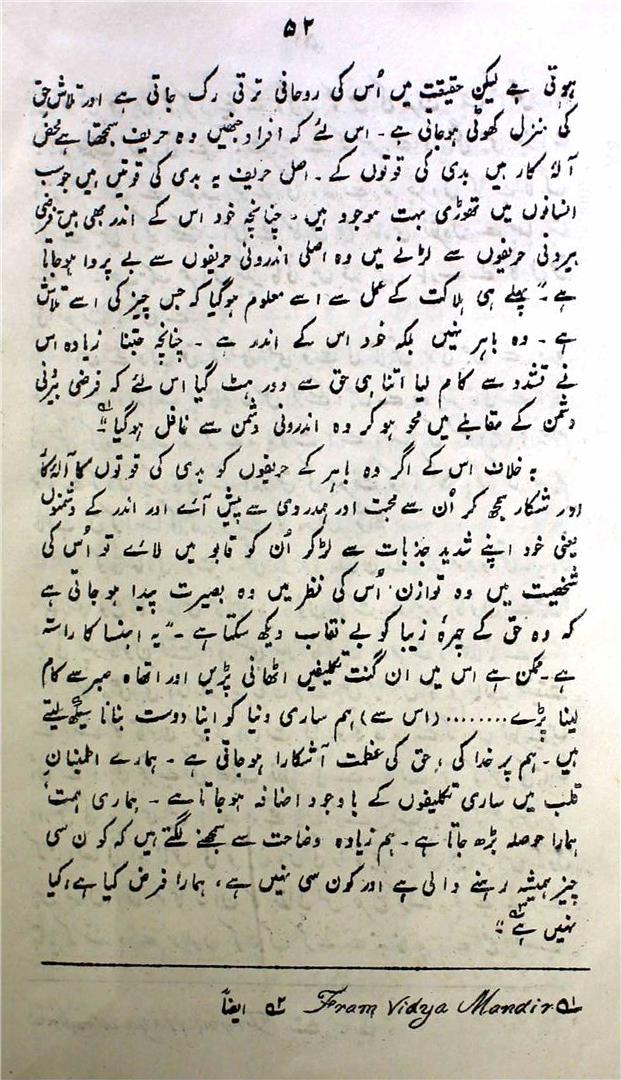 ۵۲
ہوتی ہے لیکن حقیقت میں اُس کی روحانی ترقی رک جاتی ہے اور تلاشِ حق
کی منزل کھوٹی ہوجاتی ہے۔ اس لئے کہ افراد جنھیں وہ حریف سمجھتا ہے محض
آلۂ کار ہیں بدی کی قوتوں کے۔ اصل حریف یہ بدی کی قوتیں ہیں جو سب
انسانوں میں تھوڑی بہت موجود ہیں۔ چنانچہ خود اس کے اندر بھی ہیں۔ فرضی
بیرونی حریفوں سے لڑانے میں وہ اصلی اندرونی حریفوں سے بے پروا ہوجاتا
ہے۔" پہلے ہی ہلاکت کے عمل سے اسے معلوم ہوگیا کہ جس چیز کی اسے تلاش
ہے۔ وہ باہر نہیں بلکہ خود اس کے اندر ہے ۔ چنانچہ جتنا زیادہ اس
نے تشدد سے کام لیا اتنا ہی حق سے دور ہٹ گیا اس لئے کہ فرضی بیرونی
دشمن کے مقابلے میں محو ہو کر وہ اندرونی دشمن سے غافل ہوگیا"۱ٖ
بہ خلاف اس کے اگر وہ باہر کے حریفوں کو بدی کی قوتوں کا آلۂ کار
اور شکار سمجھ کر اُن سے محبت اور ہمدروی سے پیش آئے اور اندر کے دشمنوں
یعنی خود اپنے شدید جذبات سے لڑکر اُن کو قابو میں لائے تو اُس کی
شخصیت میں وہ توازن اُس کی نظر میں وہ بصیرت پیدا ہوجاتی ہے
کہ وہ حق کے چہرۂ زیبا کو بے نقاب دیکھ سکتا ہے ۔" یہ اہنسا کا راستہ
ہے۔ ممکن ہے اس میں ان گنت تکلیفیں اٹھانی پڑیں اور اتھاہ صبر سے کام
لینا پڑے........ (اس سے) ہم ساری دنیا کو اپنا دوست بنانا سیکھ لیتے
ہیں۔ ہم پر خدا کی، حق کی عظمت آشکارا ہوجاتی ہے ۔ ہمارے اطمینانِ
قلب میں ساری تکلیفوں کے باوجود اضافہ ہوجاتا ہے ۔ ہماری ہمت،
ہمارا حوصلہ بڑھ جاتا ہے۔ ہم زیادہ وضاحت سے سمجھنے لگتے ہیں کہ کون سی
چیز ہمیشہ رہنے والی ہے اور کون سی نہیں ہے، ہمارا فرض کیا ہے، کیا
نہیں ہے"۲
۱ Fram Vidya Mandir ۲ ایضاً